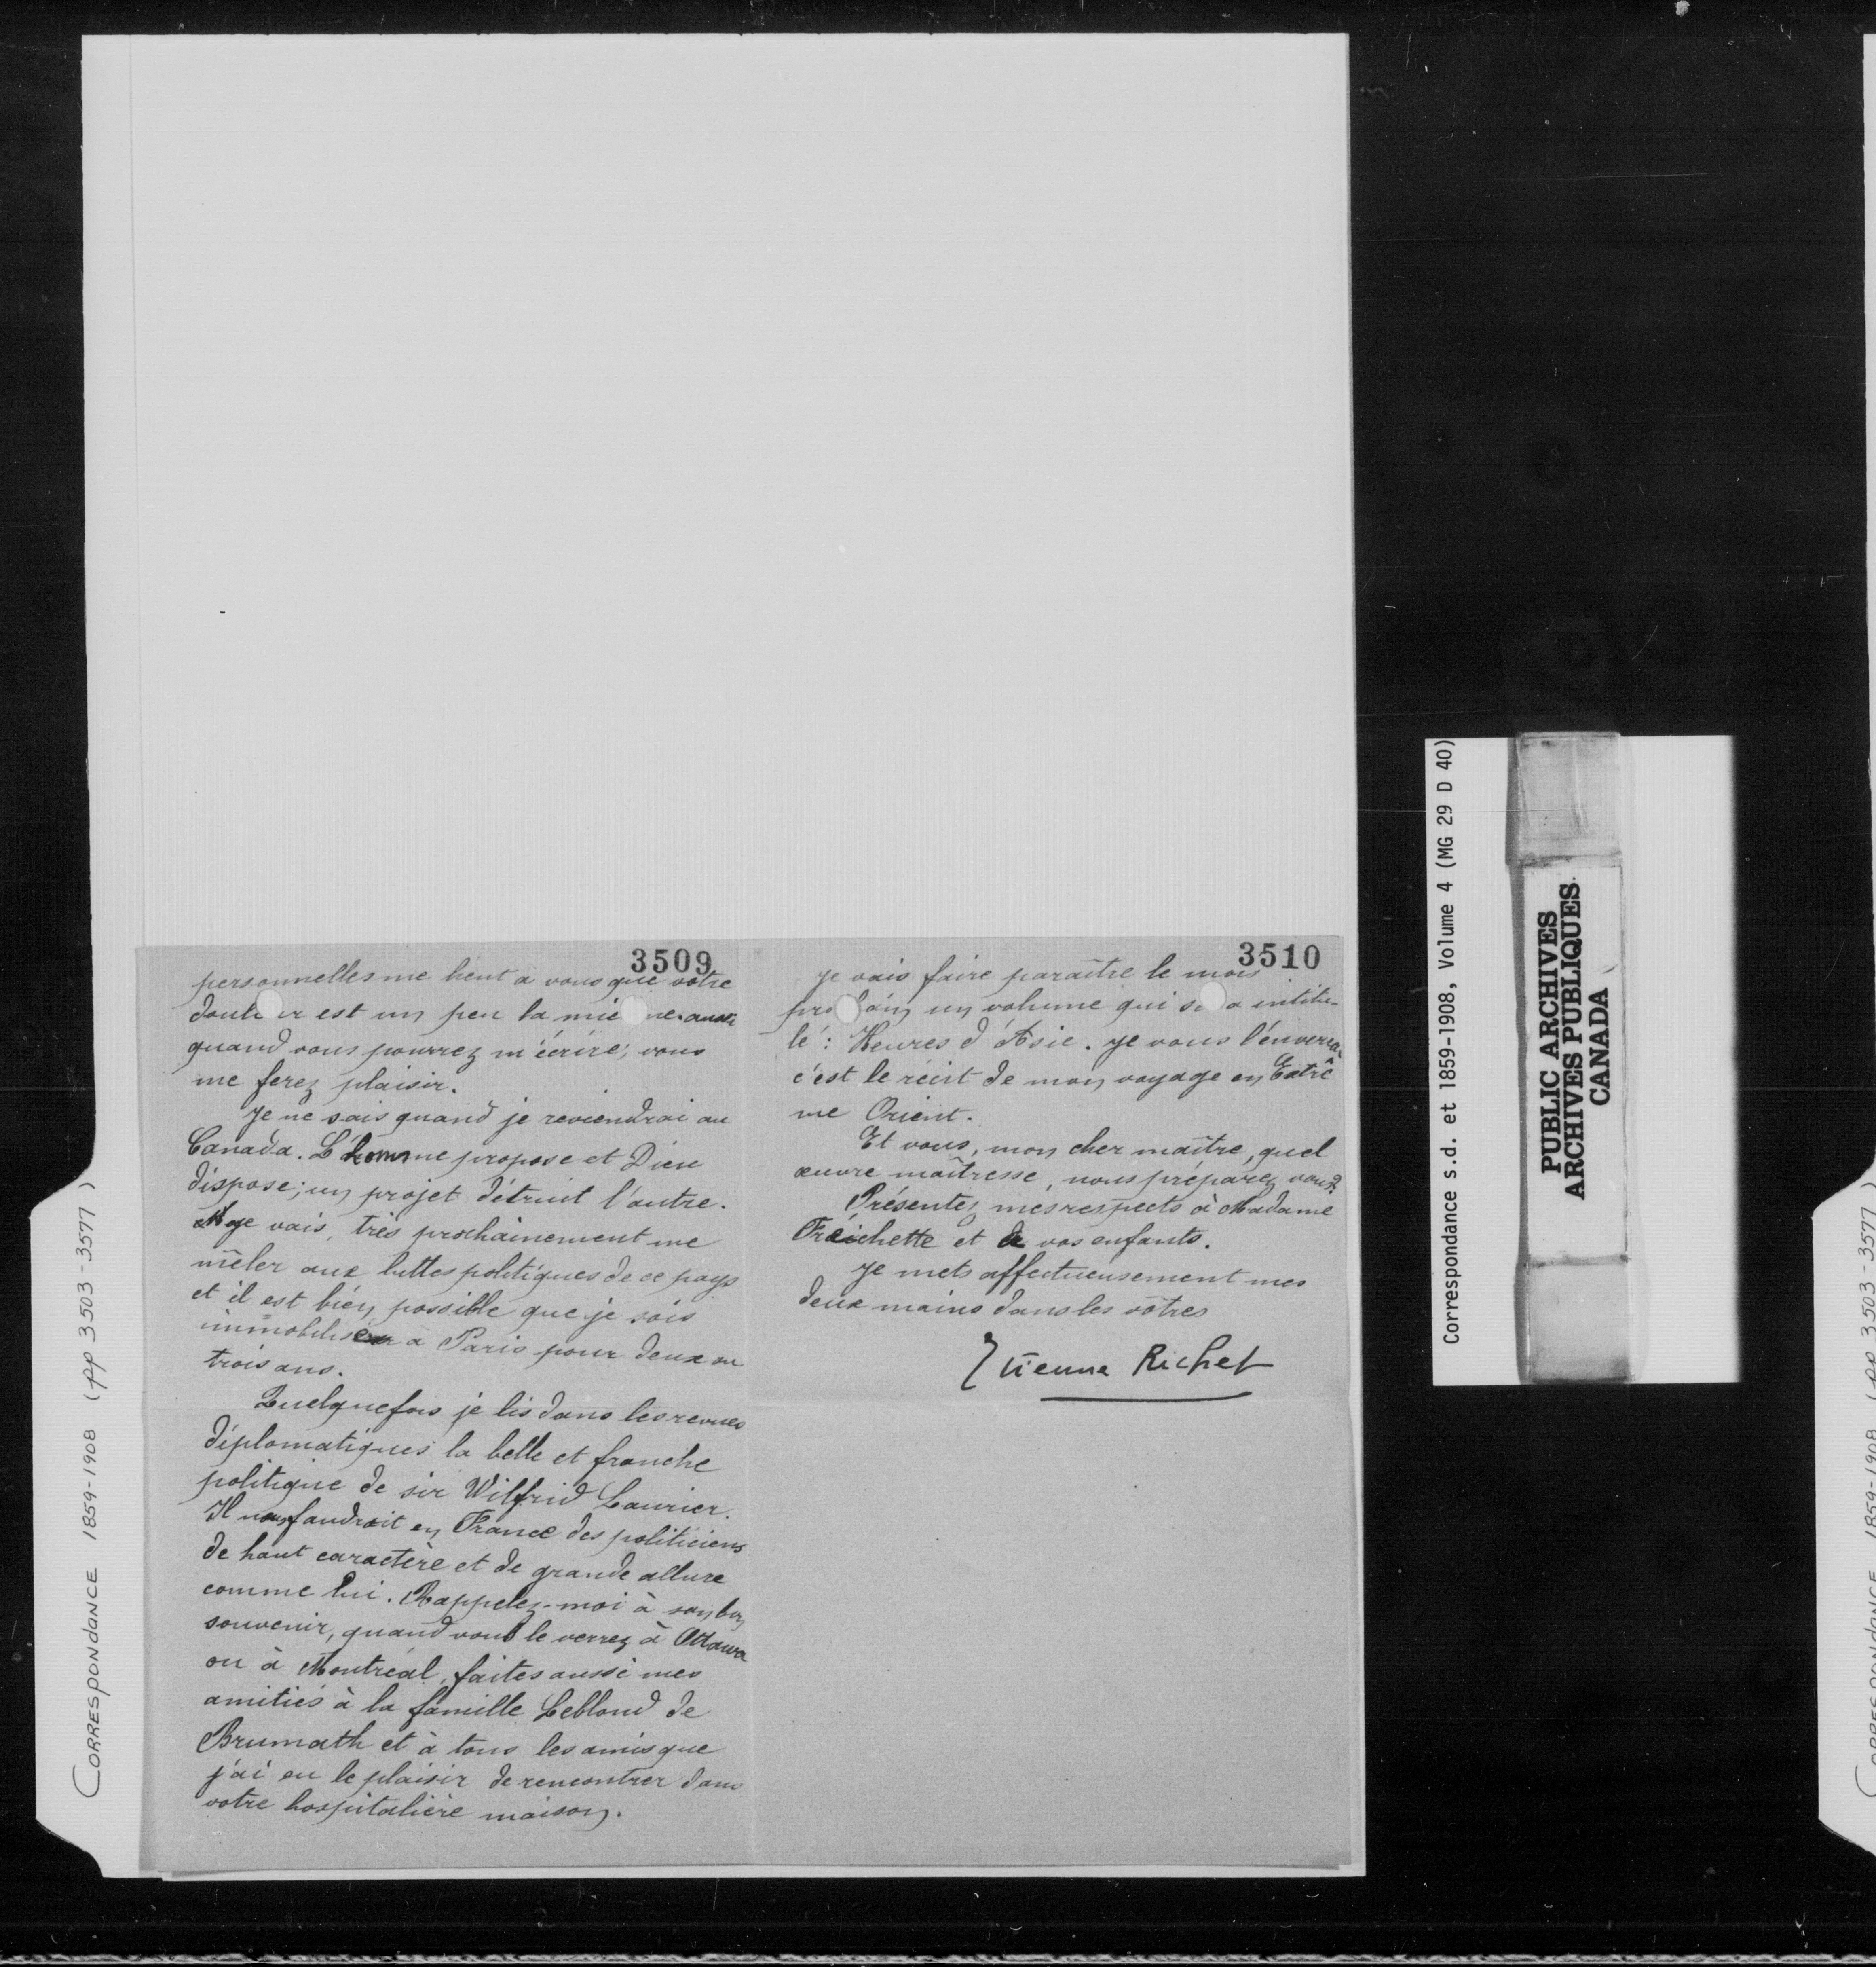 3509
personnelles me lient à vous que votre
doul ur est un peu la mie ne. aussi
quand vous pourrez m'écrire, vous
me ferez plaisir.
Je ne sais quand je reviendrai au
Canada. L'homme propose et Dieu
dispose; un projet détruit l'autre.
je vais, très prochainement me
mêler aux luttes politiques de ce pays
et il est bien possible que je sois
immobilisé à Paris pour deux ou
trois ans.
Quelquefois je lis dans les revues
diplomatiques la belle et franche
politique de sir Wilfrid Laurier.
Il nous faudrait en France des politiciens
de haut caractère et de grande allure
comme lui. Rappelez-moi à son bon
souvenir, quand vous le verrez à Ottawa
ou à Montréal, faites aussi mes
amitiés à la famille Leblond de
Brumath et à tous les amis que
j'ai eu le plaisir de rencontrer dans
votre hospitalière maison.
3510
Je vais faire paraître le mois
pro ain un volume qui s a intitu-
lé : Heures d'Asie. Je vous l'enverrai
c'est le récit de mon voyage en Extrê
me Orient.
Et vous, mon cher maître, quel
œuvre maîtresse, nous préparez vous?
Présentez mes respects à Madame
Fréchette et à vos enfants.
Je mets affectueusement mes
deux mains dans les vôtres
Etienne Richet
CORRESPONDANCE 1859-1908 (pp 3503-3577)
Correspondance s.d. et 1859-1908, Volume 4 (MG 29 D 40)
PUBLIC ARCHIVES
ARCHIVES PUBLIQUES
CANADA
CORRESPONDANCE 1859-1908 (pp 3503-3577)